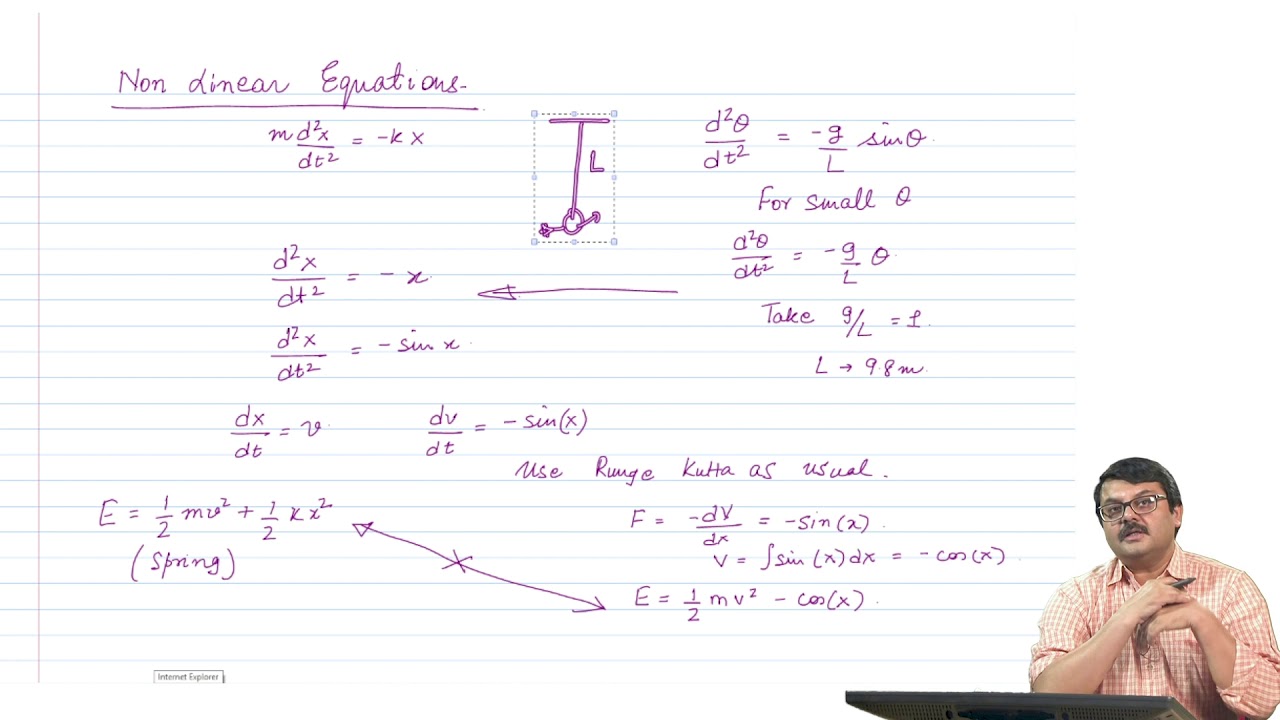 Non Linear Equations.
m d²x/dt² = -kx
L
d²θ/dt² = -g/L sinθ.
For small θ
d²θ/dt² = -g/L θ.
d²x/dt² = - x.
Take g/L = 1.
d²x/dt² = - sin x.
L → 9.8m.
dx/dt = v.
dv/dt = - sin(x)
Use Runge Kutta as usual.
E = 1/2 mv² + 1/2 kx²
(Spring)
F = -dV/dx = -sin(x).
V = ∫sin(x)dx = - cos(x).
E = 1/2 mv² - cos(x).
Internet Explorer